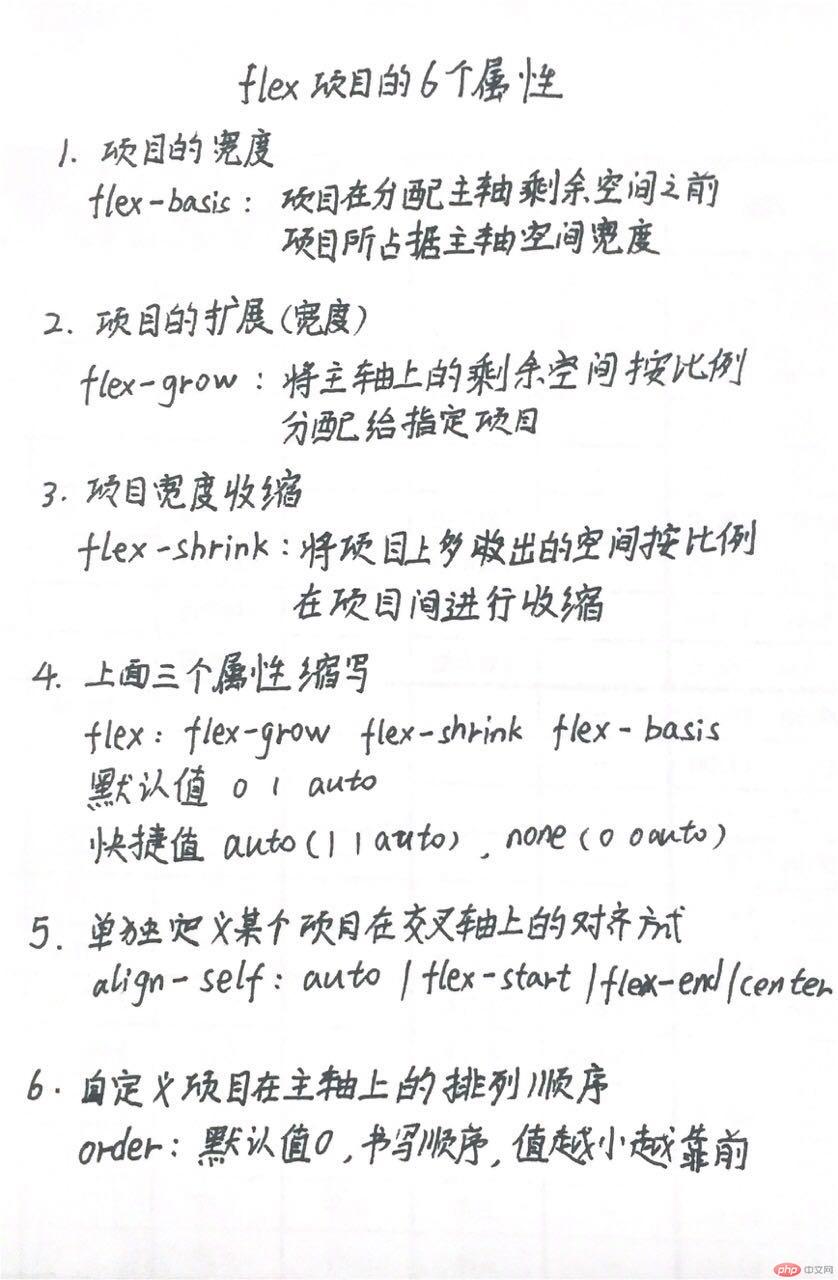 flex 项目的6个属性
1. 项目的宽度
flex-basis: 项目在分配主轴剩余空间之前
项目所占据主轴空间宽度
2. 项目的扩展(宽度)
flex-grow: 将主轴上的剩余空间按比例
分配给指定项目
3. 项目宽度收缩
flex-shrink: 将项目上多收出的空间按比例
在项目间进行收缩
4. 上面三个属性缩写
flex: flex-grow flex-shrink flex-basis
默认值 0 1 auto
快捷值 auto(1 1 auto), none(0 0 auto)
5. 单独定义某个项目在交叉轴上的对齐方式
align-self: auto / flex-start / flex-end / center
6. 自定义项目在主轴上的排列顺序
order: 默认值0, 书写顺序, 值越小越靠前
php 中文网